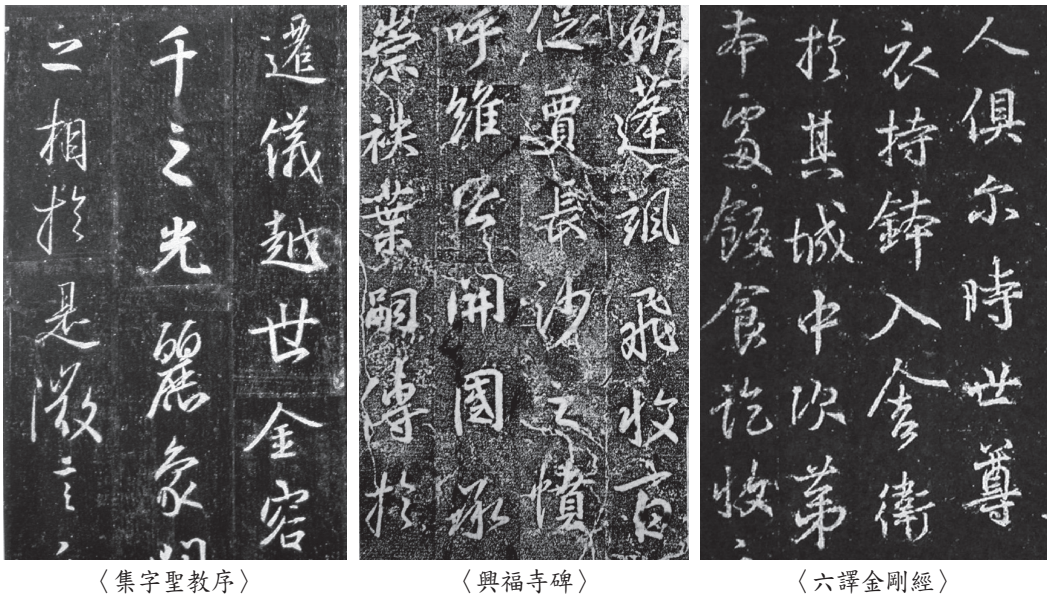 遷儀越世金容
千之光麗象
之相於是微言
〈集字聖教序〉
秋蓬颯飛收
促賈長沙之憤
呼維開國
崇袟葉嗣傳於
〈興福寺碑〉
人俱尔時世尊
衣持鉢入舍衛
於其城中次第
本處飯食訖收
〈六譯金剛經〉